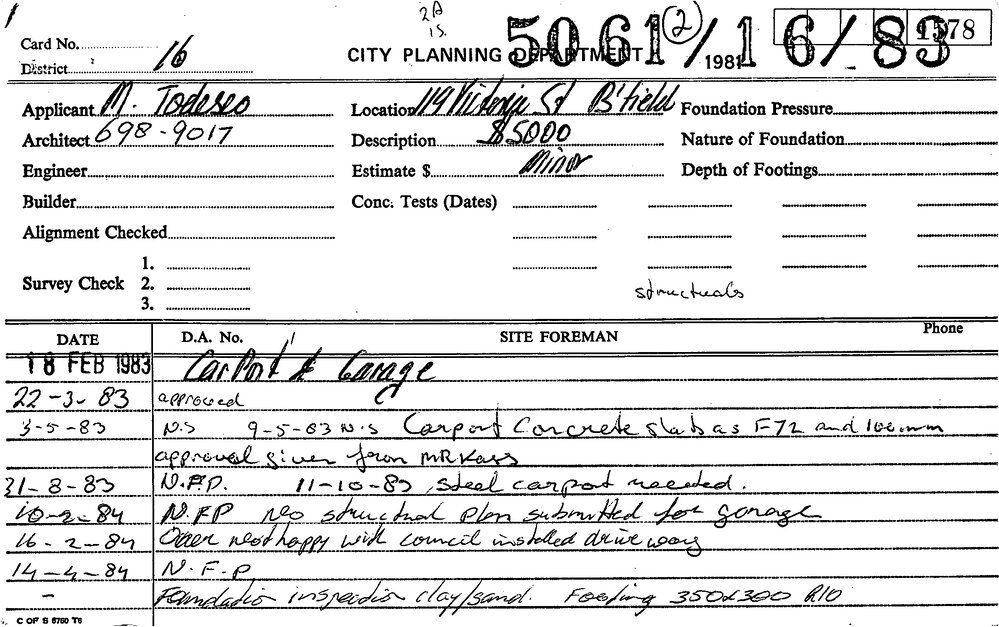 2A
15.
5061/16/83
(2)
1578
Card No.
District 16
CITY PLANNING DEPARTMENT
1981
Applicant M. Todeseo
Location 119 Victoria St B'field
Foundation Pressure
Architect 698-9017
Description $5000
Nature of Foundation
Engineer
Estimate $ Minor
Depth of Footings
Builder
Conc. Tests (Dates)
Alignment Checked
1.
Survey Check 2.
3.
structuals
DATE D.A. No. SITE FOREMAN Phone
18 FEB 1983 Carport & Garage
22-3-83 approved
3-5-83 N.S 9-5-83 N.S Carport Concrete slab as F72 and 100mm
approval given from MR Kass
31-8-83 N.F.P. 11-10-83 steel carport needed.
10-2-84 N.F.P No structual plan submitted for garage
16-2-84 Owner not happy with council installed drive way
14-4-84 N.F.P
- Foundation inspection clay/sand. Footing 350x300 R10
C OF S 6760 T6